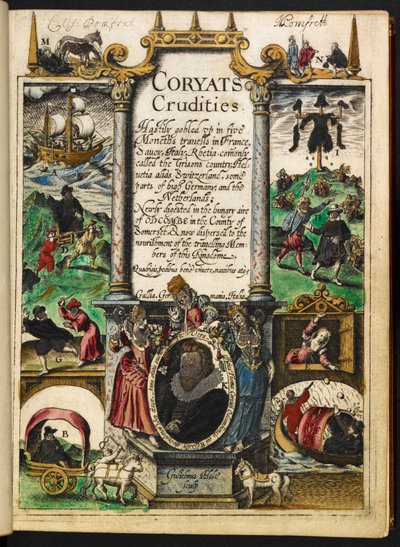 Elis: Pomfret
Pomfrett
M
N
CORYATS
Crudities
Hastily gobled up in five
Moneths travells in France,
Savoy, Italy, Rhetia comonly
called the Grisons country, Hel-
vetia aliàs Switzerland, some
parts of high Germany, and the
Netherlands;
Newly digested in the hungry aire
of ODCOMBE in the County of
Somerset, & now dispersed to the
nourishment of the travelling Mem-
bers of this Kingdome.
Quadrigis, pedibus bene vivere, navibus atq
Gallia, Germania, Italia.
G
B
Gulielmus Hole
sculp